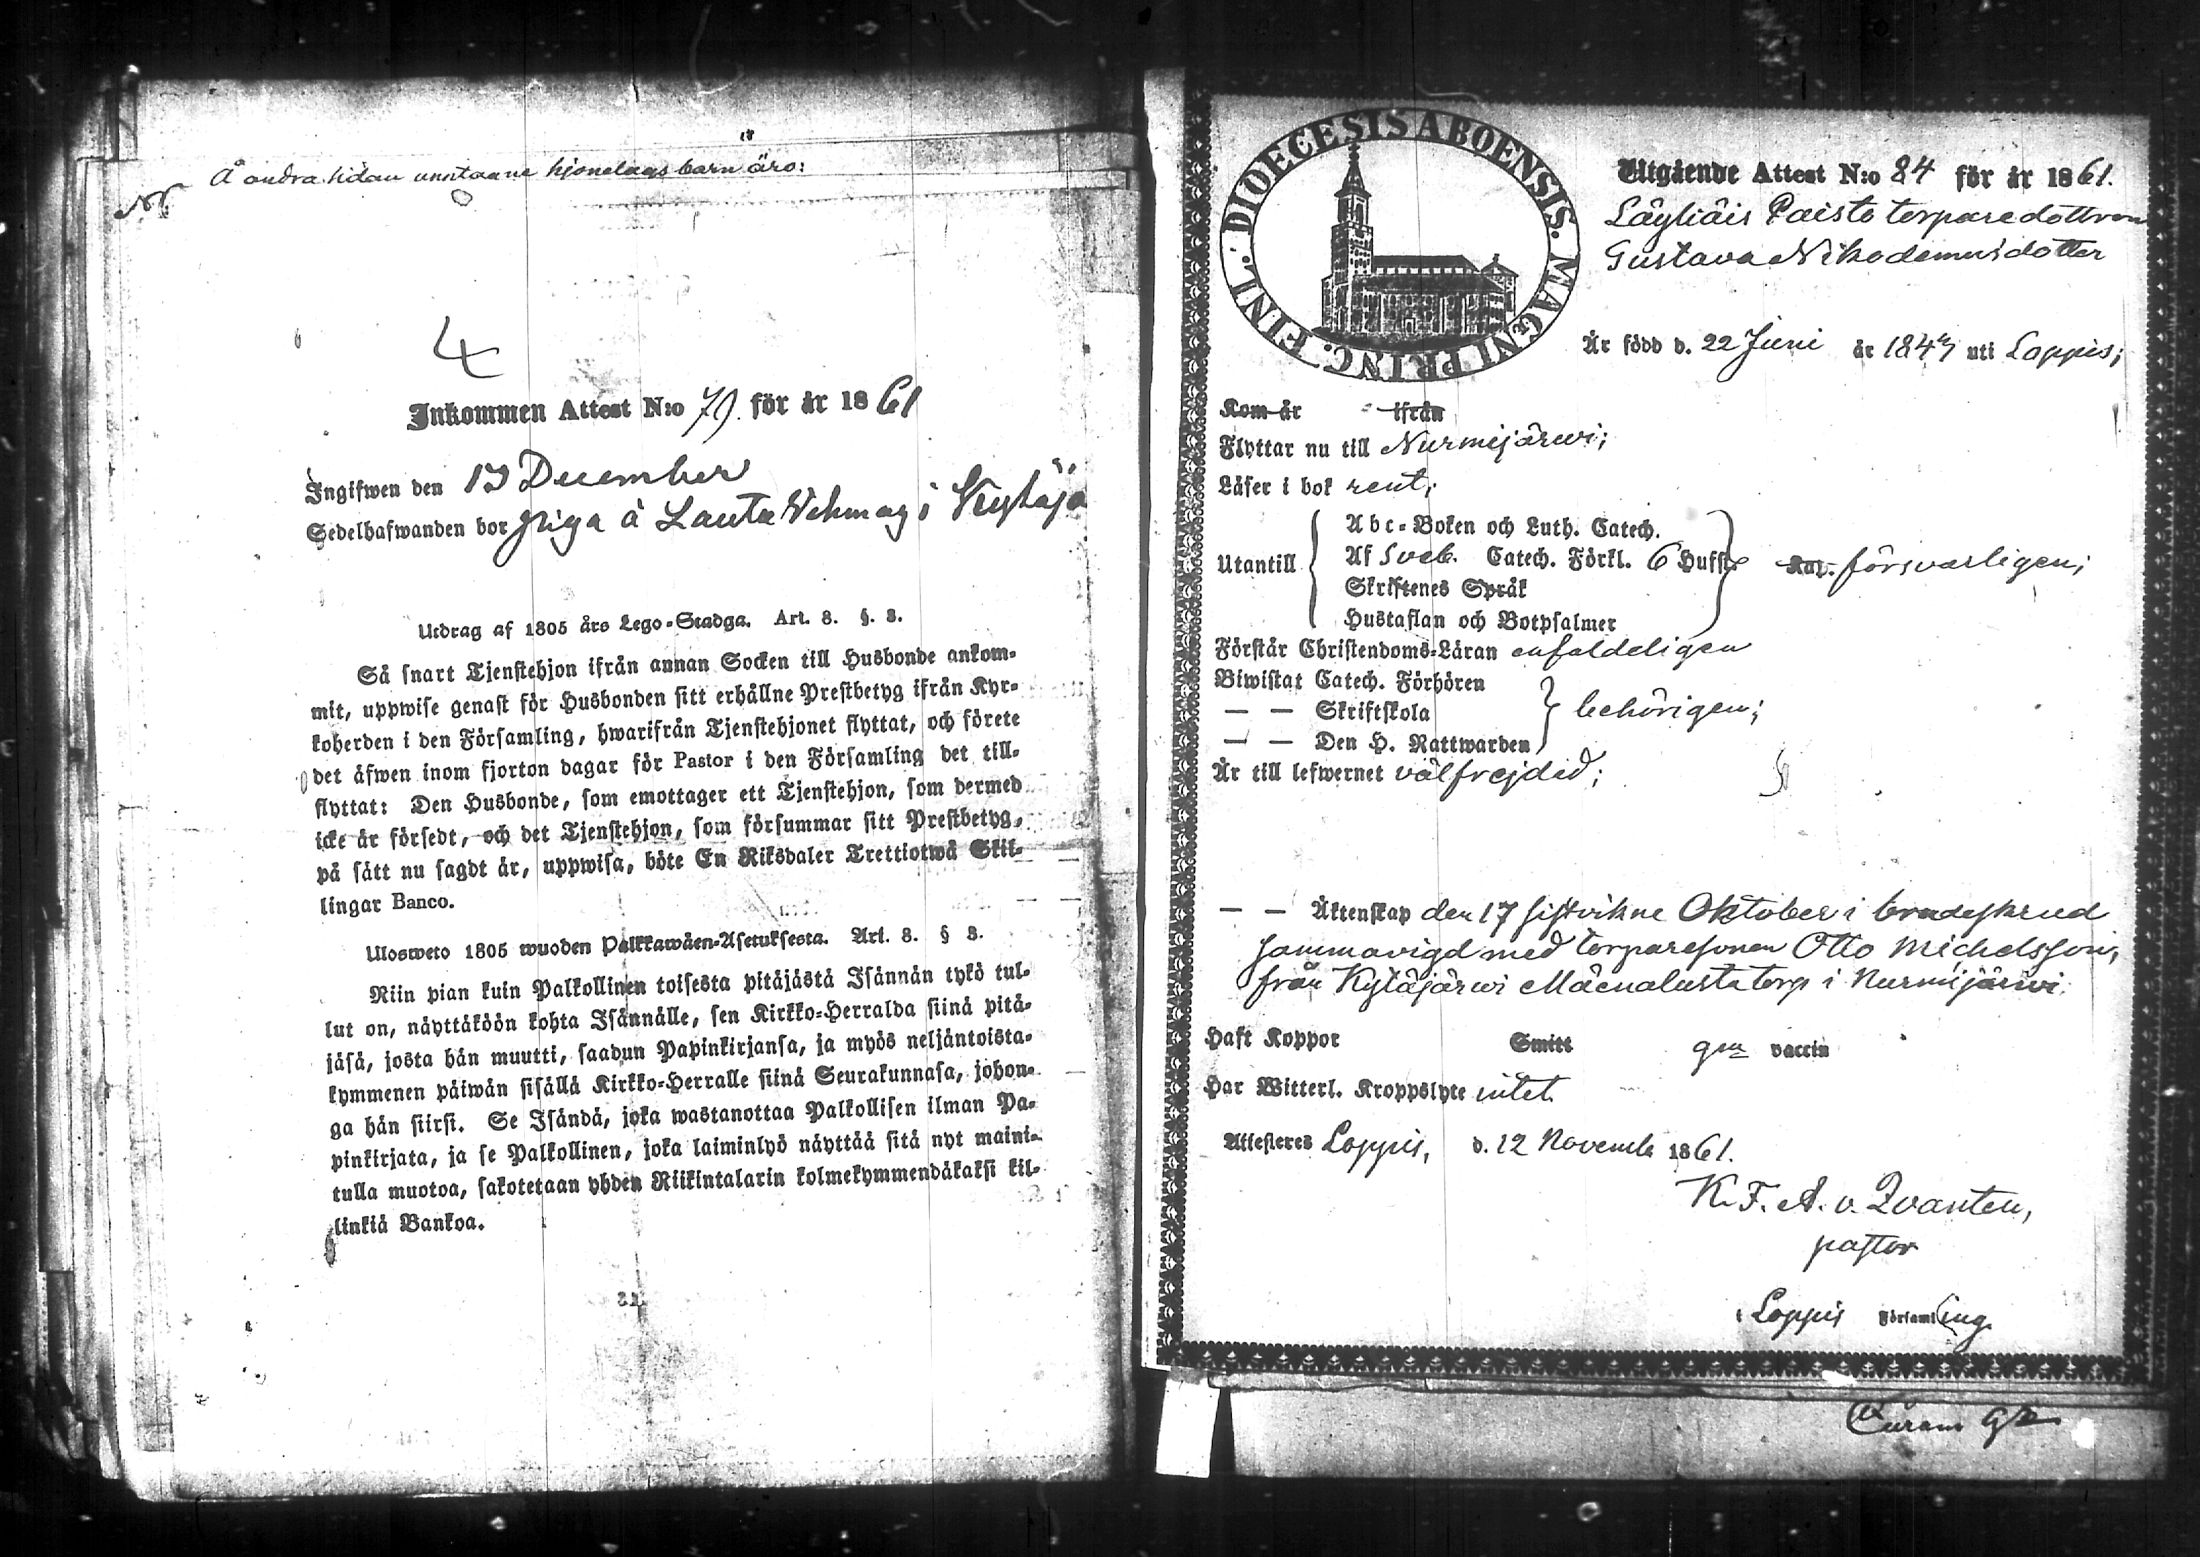 Å andra sidan omtaltne hjonelags barn äro:
4
Inkommen Attest N:o 79. för år 1861
Ingifwen den 13 December
Sedelhafwanden bor piga å Lauta Wehmas i Kytäjä
Utdrag af 1805 års Lego-Stadga. Art. 8. §. 3.
Så snart Tjenstehjon ifrån annan Socken till Husbonde ankom-
mit, uppwise genast för Husbonden sitt erhållne Prestbetyg ifrån Kyr-
koherden i den Församling, hwarifrån Tjenstehjonet flyttat, och förete
det äfwen inom fjorton dagar för Pastor i den Församling det till-
flyttat: Den Husbonde, som emottager ett Tjenstehjon, som dermed
icke är försedt, och det Tjenstehjon, som försummar sitt Prestbetyg,
på sätt nu sagdt är, uppwisa, böte En Riksdaler Trettiotwå Skil-
lingar Banco.
Ulosweto 1805 wuoden Palkkawäen-Asetuksesta. Art. 8. § 3.
Niin pian kuin Palkollinen toisesta pitäjästä Isännän tykö tul-
lut on, näyttäköön kohta Isännälle, sen Kirkko-Herralda siinä pitä-
jäsä, josta hän muutti, saadun Papinkirjansa, ja myös neljäntoista-
kymmenen päiwän sisällä Kirkko-Herralle siinä Seurakunnasa, johon-
ga hän siirsi. Se Isändä, joka wastanottaa Palkollisen ilman Pa-
pinkirjata, ja se Palkollinen, joka laiminlyö näyttää sitä nyt maini-
tulla muotoa, sakotetaan yhden Riikintalarin kolmekymmendäkaksi kil-
linkiä Bankoa.
DIOECESIS ABOENSIS. MAGNI PRINC. FINL.
Utgående Attest N:o 84 för år 1861.
Läyliäis Paisto torparedottren
Gustava Nikodemusdotter
Är född d. 22 Juni år 1843 uti Loppis;
Kom år ifrån
Flyttar nu till Nurmijärwi;
Läser i bok rent;
Utantill
Abc-Boken och Luth. Catech.
Af Sveb. Catech. Förkl. 6 Hufst. Kap. försvarligen;
Skriftenes Språk
Hustaflan och Botpsalmer
Förstår Christendoms-Läran enfaldeligen
Biwistat Catech. Förhören
— — Skriftskola behörigen;
— — Den H. Nattwarden
Är till lefwernet välfrejdad;
— — Äktenskap den 17 sistvikne Oktober i brudeskrud
sammavigd med torparesonen Otto Michelsson,
från Kytäjärwi Mäenalusta torp i Nurmijärwi.
Haft Koppor Smitt gm vaccin
Har Witterl. Kroppslyte intet
Attesteres Loppis, d. 12 Novemb 1861.
K. F. A. v. Qvanten,
pastor
i Loppis Församling.